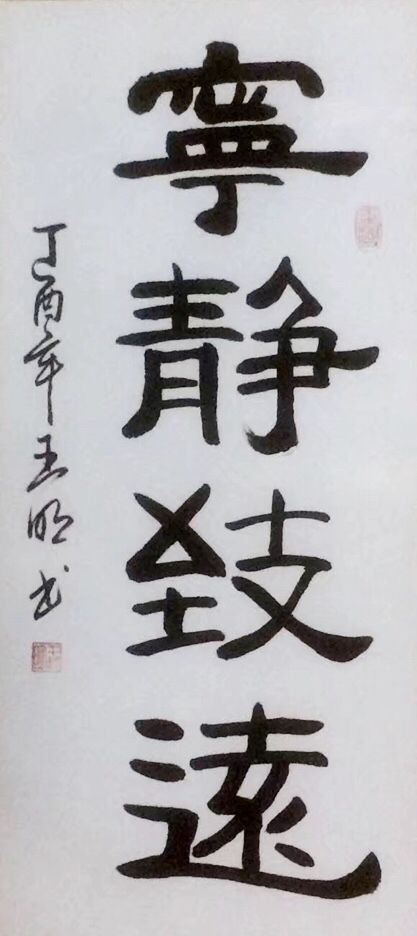 寧靜致遠
丁酉年王明书